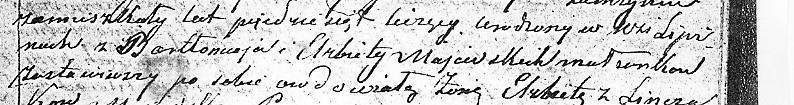 zamieszkały lat pięćdziesiąt liczący urodzony w Wsi Lipi-
nach z Bartłomieja i Elżbiety Majewskich małżonków
zostawiwszy po sobie owdowiałą żonę Elżbietę z